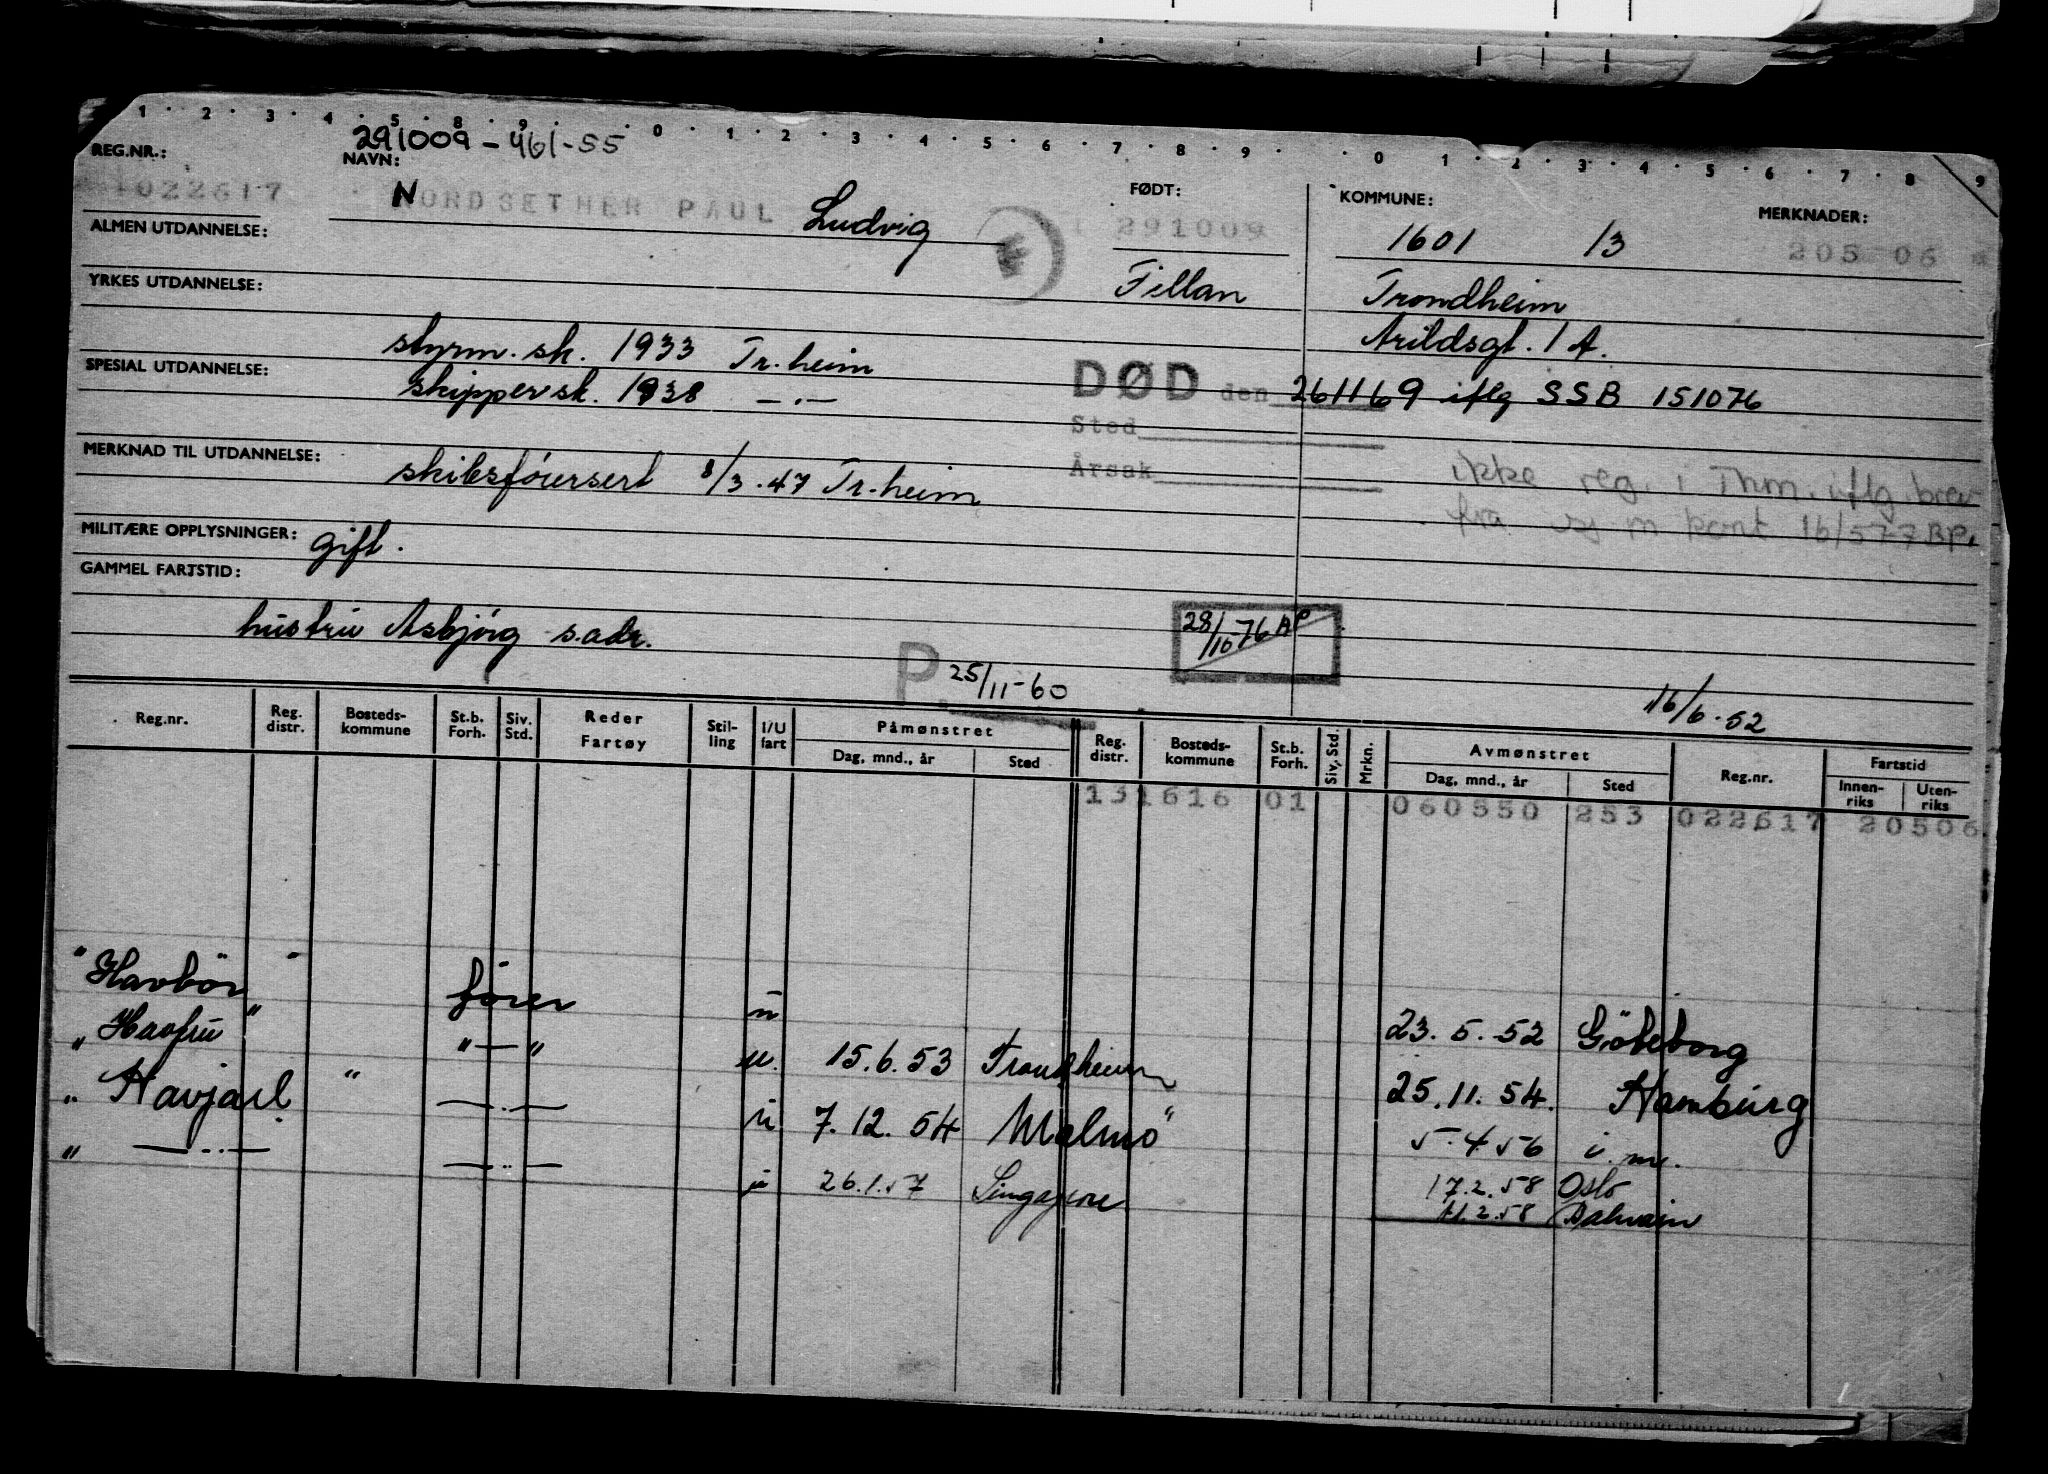 1 · 2 · 3 · 4 · 5 · 8 · 9 · · 0 · 1 · 2 · 3 · 4 · 5 · 6 · 7 · 8 · 9 · · 0 · 1 · 2 · 3 · 4 · 5 · 6 · 7 · 8 · 9
291009-461-55
REG.NR.: NAVN: FØDT: KOMMUNE: MERKNADER:
1022617 NORDSETHER PAUL Ludvig 291009 1601 13 205 06
ALMEN UTDANNELSE:
Fillan Trondheim
YRKES UTDANNELSE:
Arildsgt. 1 A.
styrm. sk. 1933 Tr. heim
SPESIAL UTDANNELSE:
skippersk. 1938 —·—
DØD den 261169 iflg SSB 151076
Sted
MERKNAD TIL UTDANNELSE: skibsförersert 8/3.47 Tr. heim
Årsak
ikke reg. i Thm. iflg. brev
fra m kont 16/577 BP.
MILITÆRE OPPLYSNINGER: gift.
GAMMEL FARTSTID:
hustru Asbjörg s.adr.
28/10-76 BP
P. 25/11-60
16/6.52
Reg.nr. Reg. distr. Bosteds-kommune St.b. Forh. Siv. Std. Reder Fartøy Stil-ling I/U fart Påmønstret Dag, mnd., år Sted Reg. distr. Bosteds-kommune St.b. Forh. Siv. Std. Mrkn. Avmønstret Dag, mnd., år Sted Reg.nr. Fartstid Innen-riks Uten-riks
131616 01 060550 253 022617 20506
"Havbör" förer u 23.5.52 Göteborg
"Havfru" "—" u. 15.6.53 Trondheim 25.11.54. Hamburg
"Havjarl" —·— u 7.12.54 Malmö 5.4.56 i. m.
" —··— —··— u 26.1.57 Singapore 17.2.58 Oslo
11.2.58 Bahrain